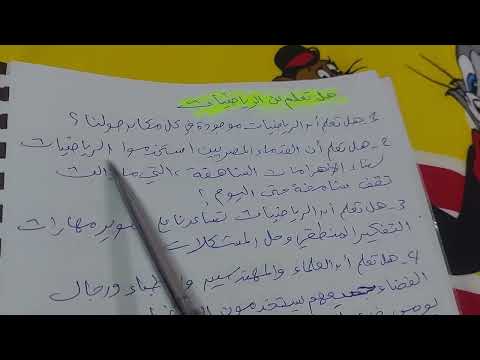 هل تعلم عن الرياضيات
1- هل تعلم أن الرياضيات موجودة في كل مكان حولنا ؟
2- هل تعلم أن القدماء المصريين استخدموا الرياضيات
لبناء الأهرامات الشاهقة ، التي ما زالت
تقف شامخة حتى اليوم ؟
3- هل تعلم أن الرياضيات تساعدنا مهارات
التفكير المنطقي وحل المشكلات
4- هل تعلم أن العلماء والمهندسين ورجال
الفضاء جميعهم يستخدمون